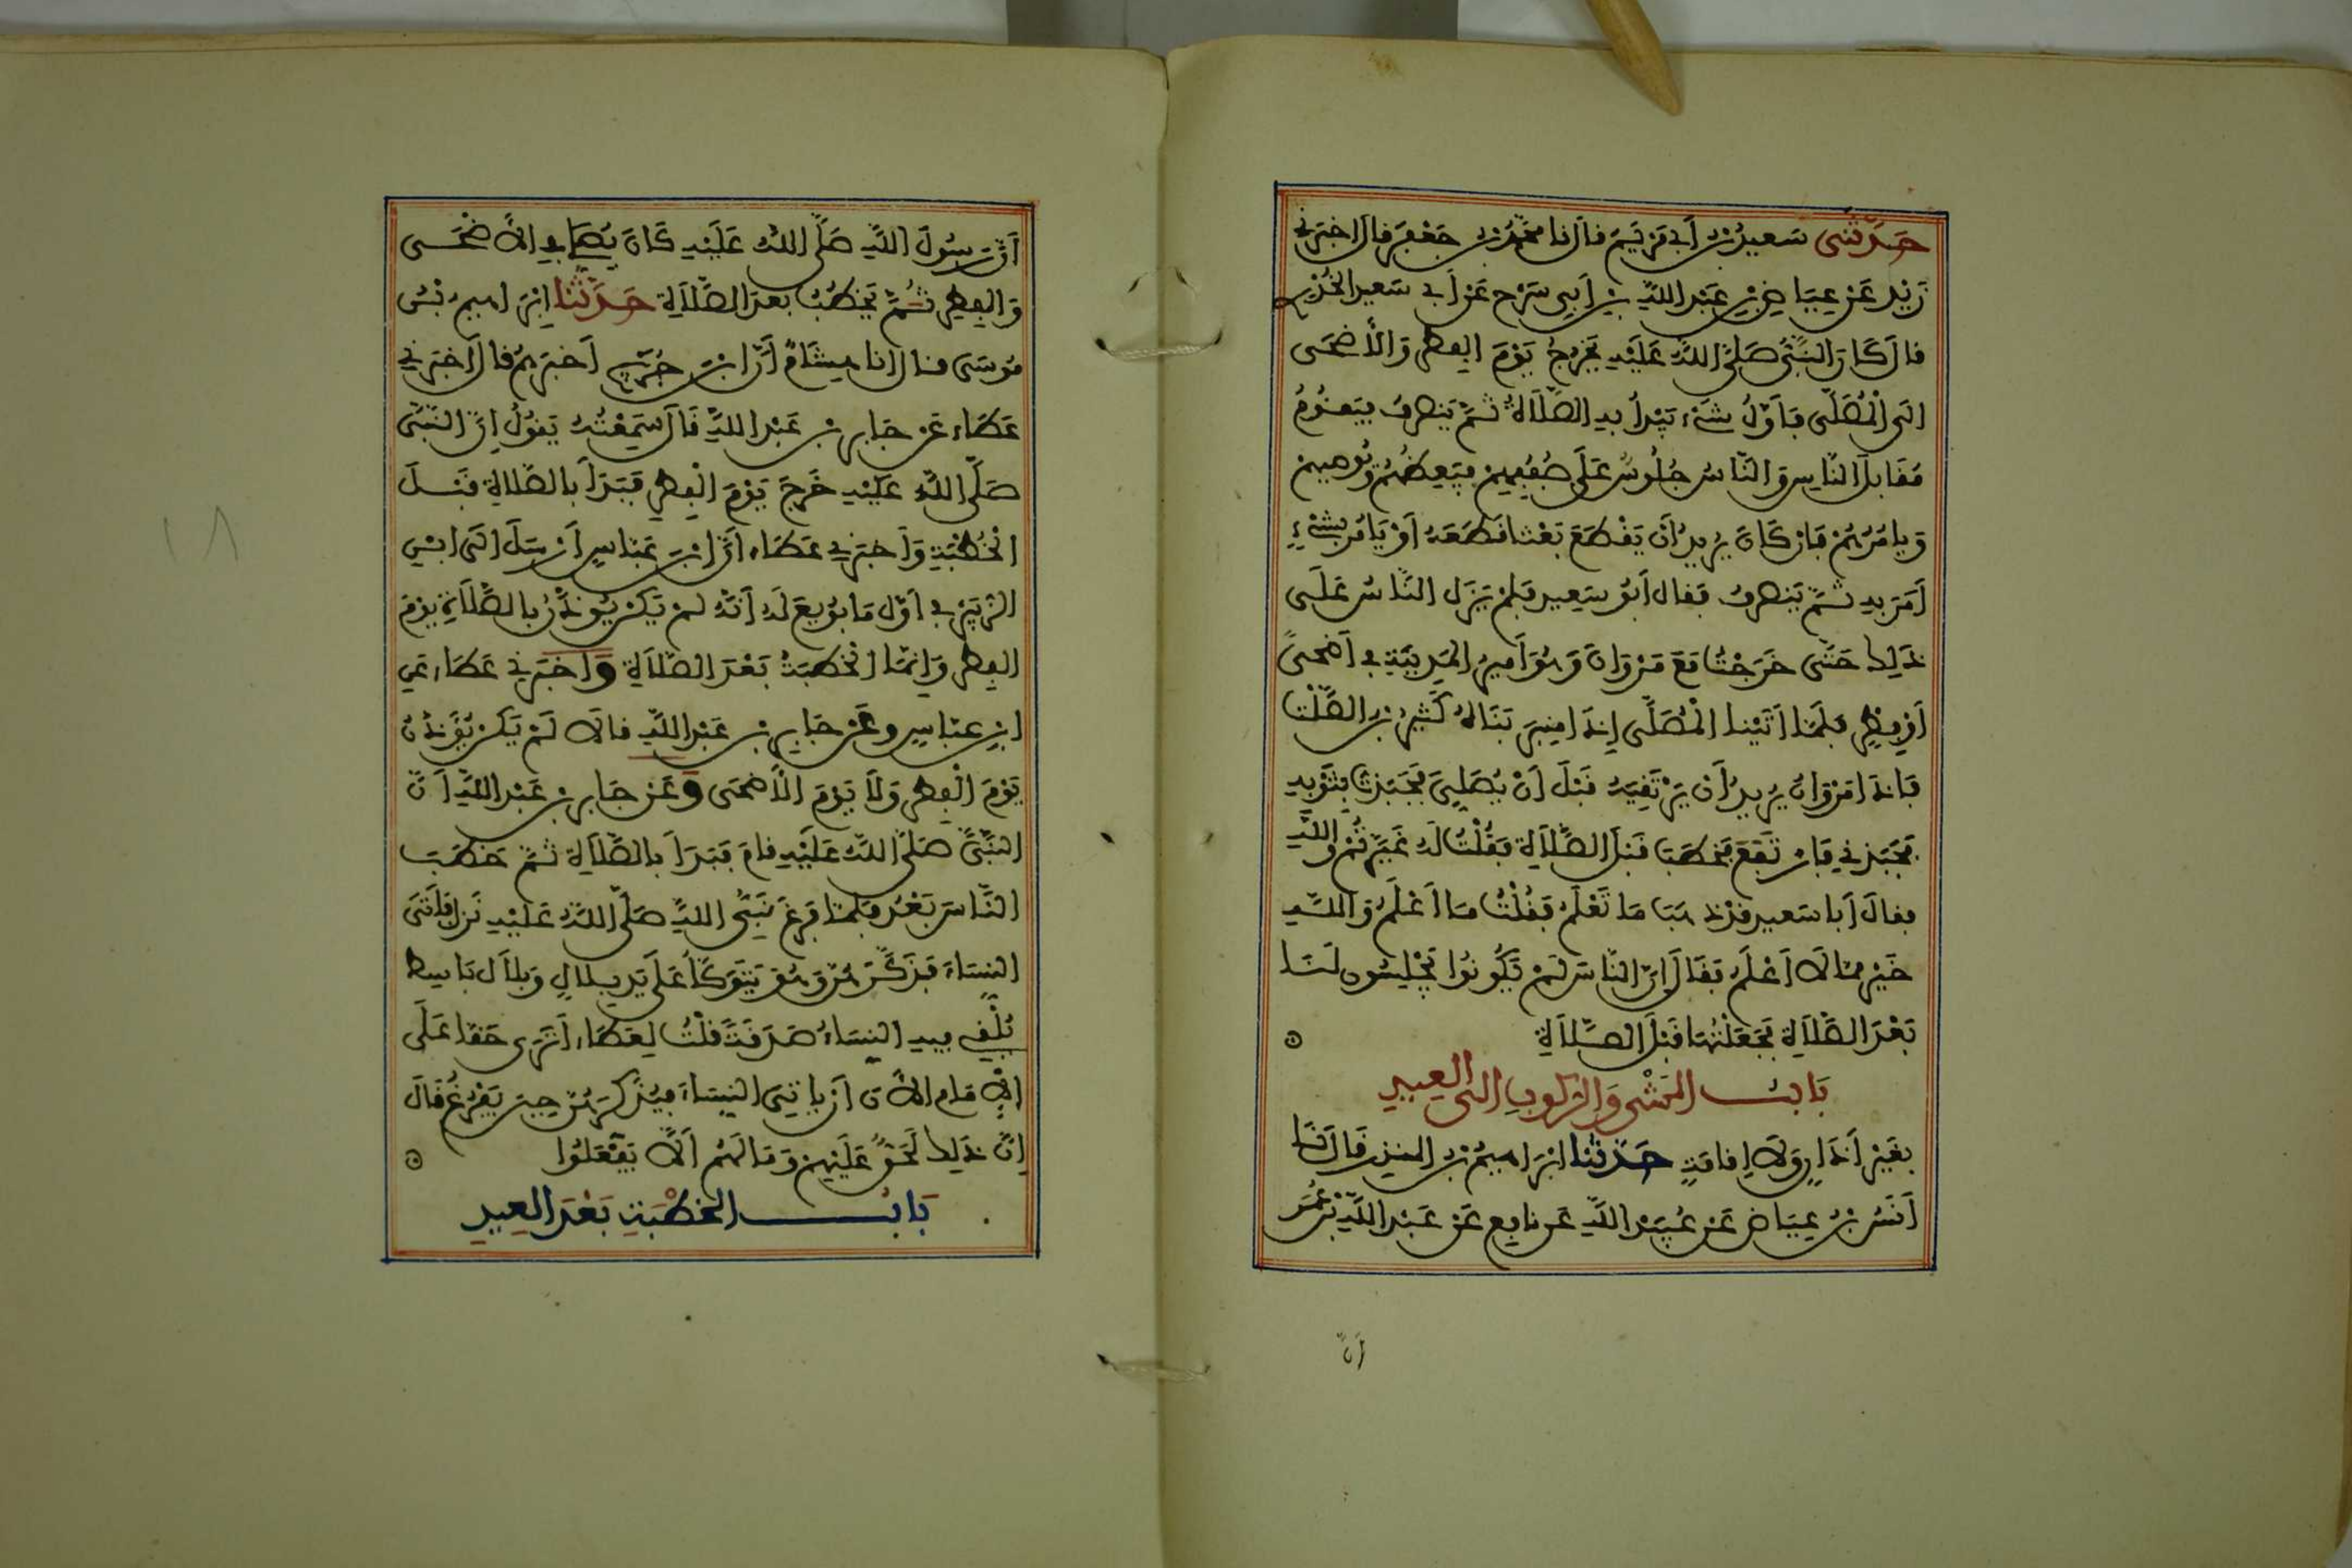 حَدَّثَنِى سَعِيدُ بْنُ أَبِى مَرْيَمَ قَالَ نَا مُحَمَّدُ بْنُ جَعْفَرٍ قَالَ أَخْبَرَنِى
زَيْدٌ عَنْ عِيَاضِ بْنِ عَبْدِ اللَّهِ بْنِ أَبِى سَرْحٍ عَنْ أَبِى سَعِيدٍ الْخُدْرِى
قَالَ كَانَ النَّبِىُّ صَلَّى اللَّهُ عَلَيْهِ يَخْرُجُ يَوْمَ الْفِطْرِ وَالْأَضْحَى
إِلَى الْمُصَلَّى فَأَوَّلُ شَىْءٍ يَبْدَأُ بِهِ الصَّلَاةُ ثُمَّ يَنْصَرِفُ فَيَقُومُ
مُقَابِلَ النَّاسِ وَالنَّاسُ جُلُوسٌ عَلَى صُفُوفِهِمْ فَيَعِظُهُمْ وَيُوصِيهِمْ
وَيَأْمُرُهُمْ فَإِنْ كَانَ يُرِيدُ أَنْ يَقْطَعَ بَعْثًا قَطَعَهُ أَوْ يَأْمُرَ بِشَىْءٍ
أَمَرَ بِهِ ثُمَّ يَنْصَرِفُ فَقَالَ أَبُو سَعِيدٍ فَلَمْ يَزَلِ النَّاسُ عَلَى
ذَلِكَ حَتَّى خَرَجْتُ مَعَ مَرْوَانَ وَهُوَ أَمِيرُ الْمَدِينَةِ فِى أَضْحًى
أَوْ فِطْرٍ فَلَمَّا أَتَيْنَا الْمُصَلَّى إِذَا مِنْبَرٌ بَنَاهُ كَثِيرُ بْنُ الصَّلْتِ
فَإِذَا مَرْوَانُ يُرِيدُ أَنْ يَرْتَقِيَهُ قَبْلَ أَنْ يُصَلِّىَ فَجَبَذْتُ بِثَوْبِهِ
فَجَبَذَنِى فَارْتَفَعَ فَخَطَبَ قَبْلَ الصَّلَاةِ فَقُلْتُ لَهُ غَيَّرْتُمْ وَاللَّهِ
فَقَالَ أَبَا سَعِيدٍ قَدْ ذَهَبَ مَا تَعْلَمُ فَقُلْتُ مَا أَعْلَمُ وَاللَّهِ
خَيْرٌ مِمَّا لَا أَعْلَمُ فَقَالَ إِنَّ النَّاسَ لَمْ يَكُونُوا يَجْلِسُونَ لَنَا
بَعْدَ الصَّلَاةِ فَجَعَلْتُهَا قَبْلَ الصَّلَاةِ
بَابُ الْمَشْىِ وَالرُّكُوبِ إِلَى الْعِيدِ
بِغَيْرِ أَذَانٍ وَلَا إِقَامَةٍ حَدَّثَنَا إِبْرَاهِيمُ بْنُ الْمُنْذِرِ قَالَ نَا
أَنَسُ بْنُ عِيَاضٍ عَنْ عُبَيْدِ اللَّهِ عَنْ نَافِعٍ عَنْ عَبْدِ اللَّهِ بْنِ عُمَرَ
أَنَّ
أَنَّ رَسُولَ اللَّهِ صَلَّى اللَّهُ عَلَيْهِ كَانَ يُصَلِّى فِى الْأَضْحَى
وَالْفِطْرِ ثُمَّ يَخْطُبُ بَعْدَ الصَّلَاةِ حَدَّثَنَا إِبْرَاهِيمُ بْنُ
مُوسَى قَالَ أَنَا هِشَامٌ أَنَّ ابْنَ جُرَيْجٍ أَخْبَرَهُمْ قَالَ أَخْبَرَنِى
عَطَاءٌ عَنْ جَابِرِ بْنِ عَبْدِ اللَّهِ قَالَ سَمِعْتُهُ يَقُولُ إِنَّ النَّبِىَّ
صَلَّى اللَّهُ عَلَيْهِ خَرَجَ يَوْمَ الْفِطْرِ فَبَدَأَ بِالصَّلَاةِ قَبْلَ
الْخُطْبَةِ وَأَخْبَرَنِى عَطَاءٌ أَنَّ ابْنَ عَبَّاسٍ أَرْسَلَ إِلَى ابْنِ
الزُّبَيْرِ فِى أَوَّلِ مَا بُويِعَ لَهُ أَنَّهُ لَمْ يَكُنْ يُؤَذَّنُ بِالصَّلَاةِ يَوْمَ
الْفِطْرِ وَإِنَّمَا الْخُطْبَةُ بَعْدَ الصَّلَاةِ وَأَخْبَرَنِى عَطَاءٌ عَنِ
ابْنِ عَبَّاسٍ وَعَنْ جَابِرِ بْنِ عَبْدِ اللَّهِ قَالَا لَمْ يَكُنْ يُؤَذَّنُ
يَوْمَ الْفِطْرِ وَلَا يَوْمَ الْأَضْحَى وَعَنْ جَابِرِ بْنِ عَبْدِ اللَّهِ أَنَّ
النَّبِىَّ صَلَّى اللَّهُ عَلَيْهِ قَامَ فَبَدَأَ بِالصَّلَاةِ ثُمَّ خَطَبَ
النَّاسَ بَعْدُ فَلَمَّا فَرَغَ نَبِىُّ اللَّهِ صَلَّى اللَّهُ عَلَيْهِ نَزَلَ فَأَتَى
النِّسَاءَ فَذَكَّرَهُنَّ وَهُوَ يَتَوَكَّأُ عَلَى يَدِ بِلَالٍ وَبِلَالٌ بَاسِطٌ
يُلْقِى فِيهِ النِّسَاءُ صَدَقَةً قُلْتُ لِعَطَاءٍ أَتَرَى حَقًّا عَلَى
الْإِمَامِ الْآنَ أَنْ يَأْتِىَ النِّسَاءَ فَيُذَكِّرَهُنَّ حِينَ يَفْرُغُ قَالَ
إِنَّ ذَلِكَ لَحَقٌّ عَلَيْهِمْ وَمَا لَهُمْ أَلَّا يَفْعَلُوا
بَابُ الْخُطْبَةِ بَعْدَ الْعِيدِ
١٨